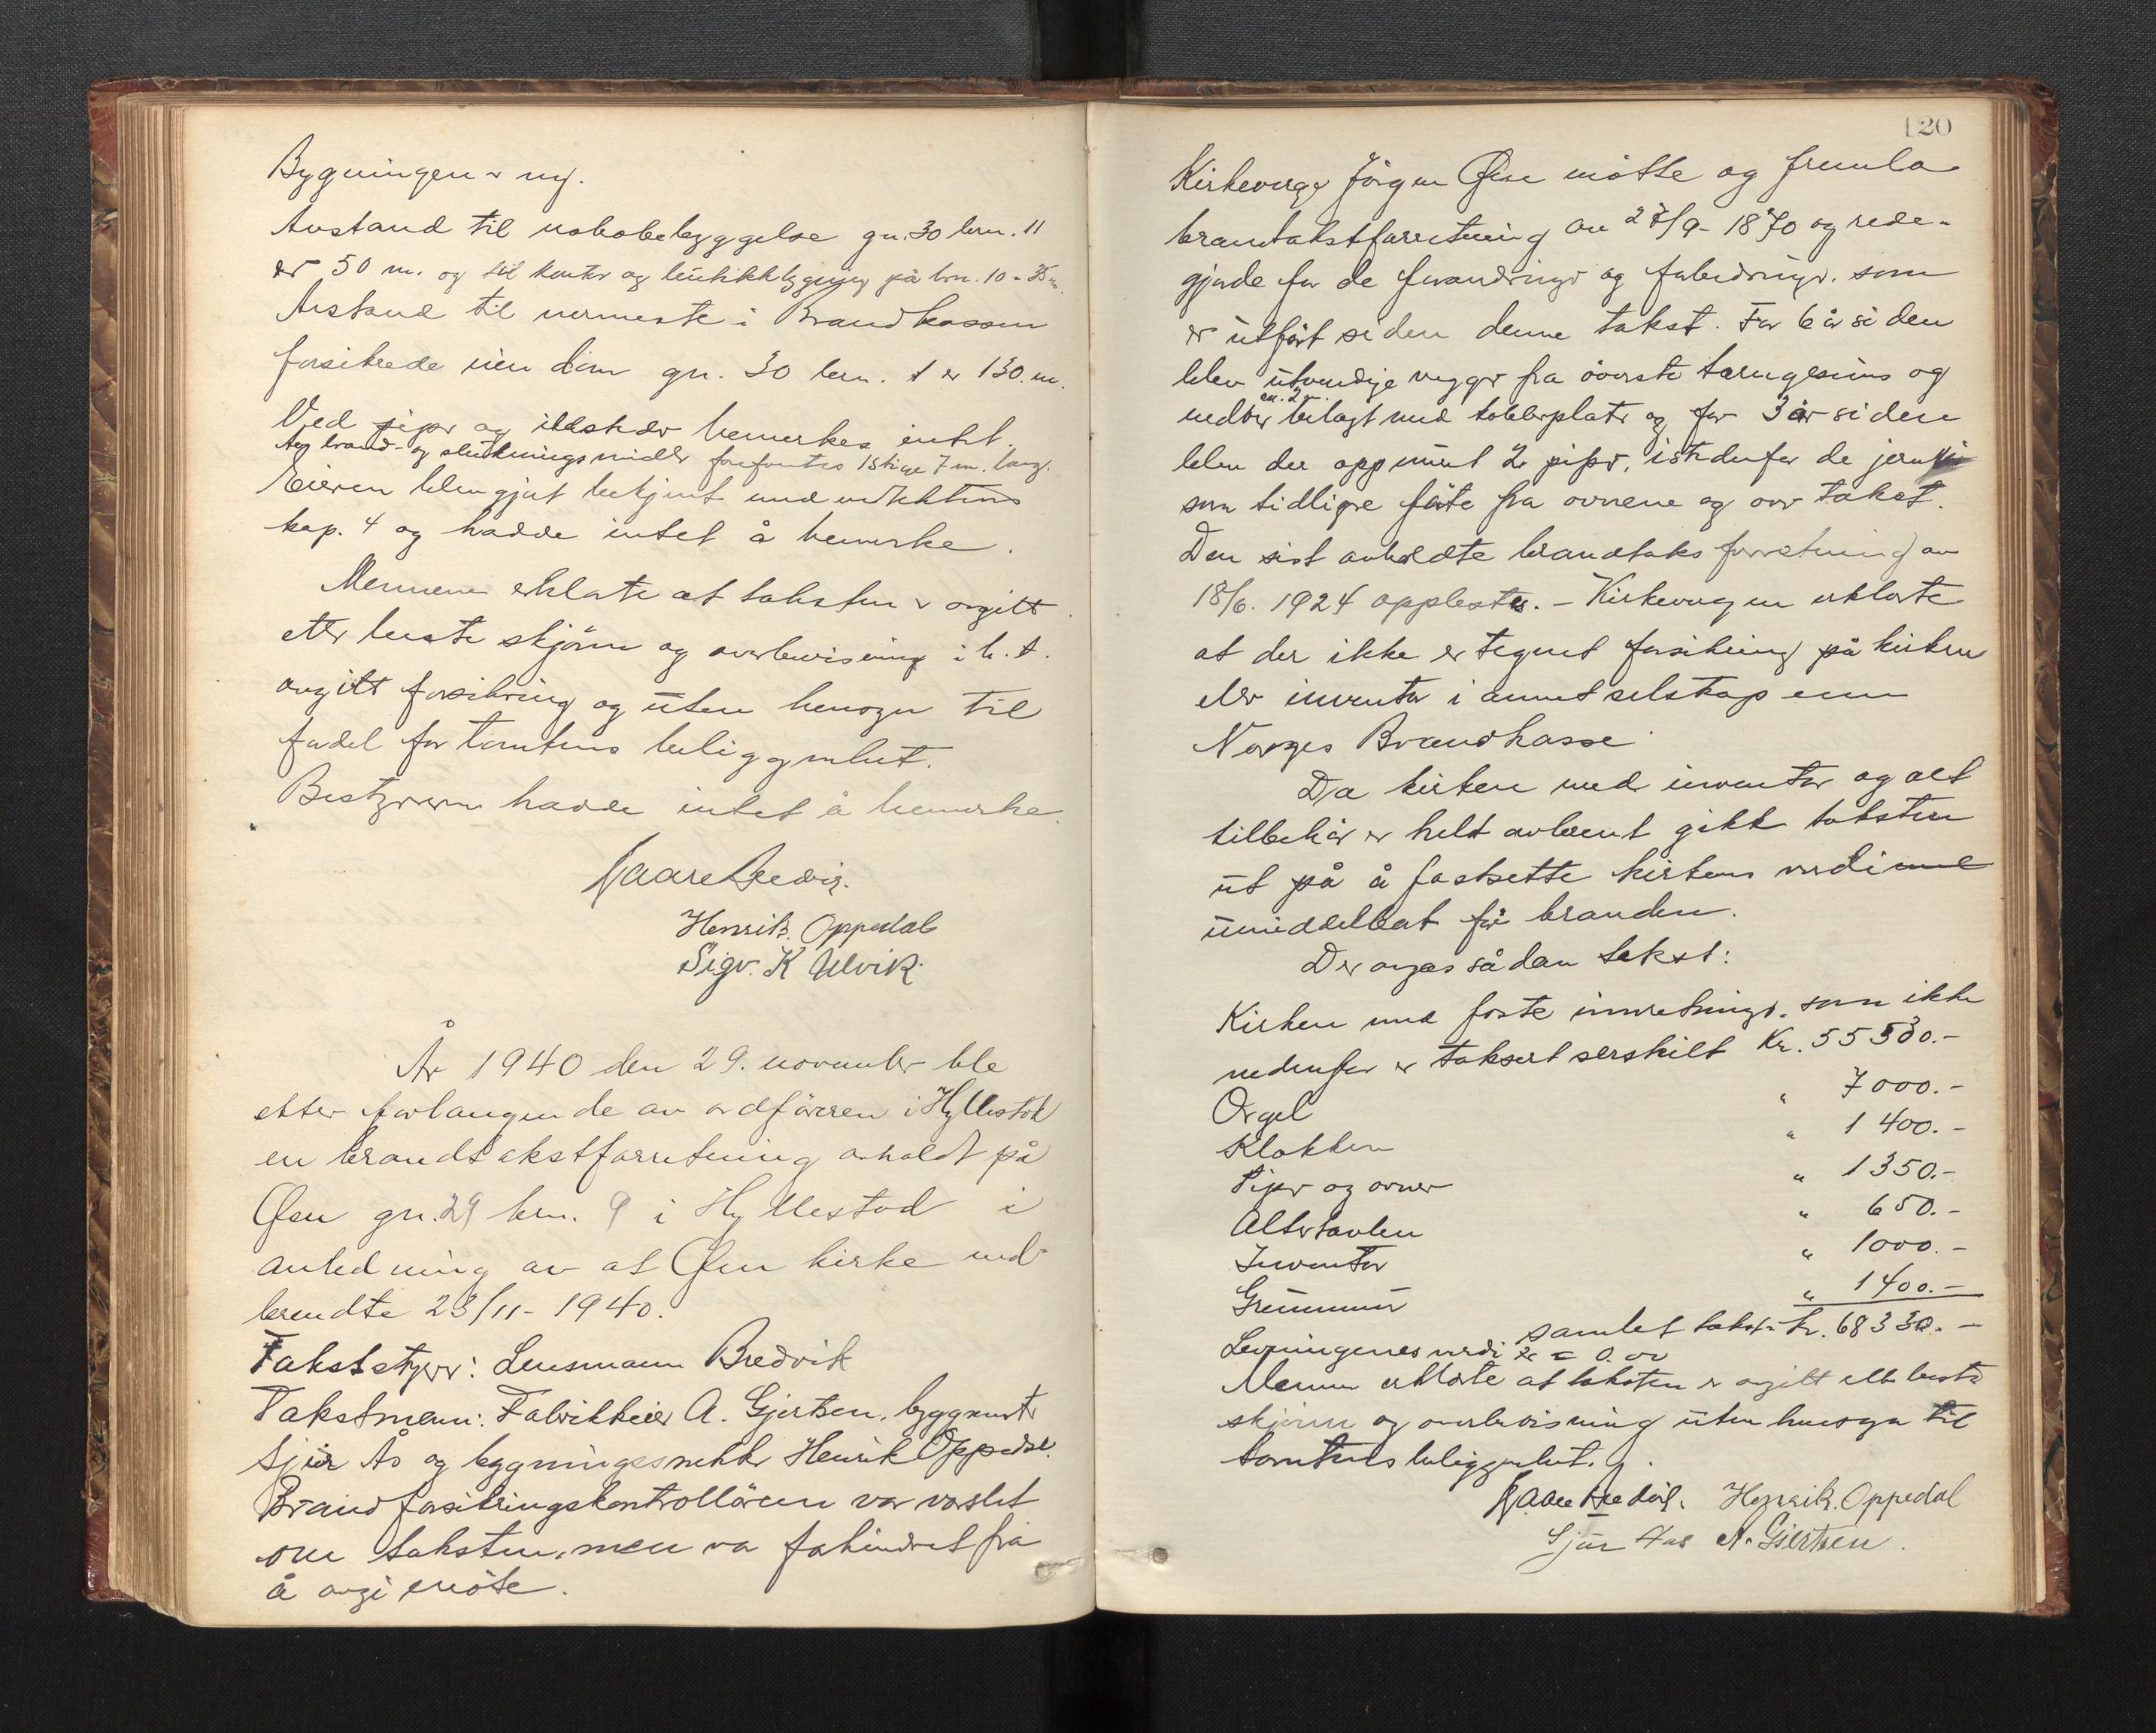 Bygningen er ny.
Avstand til nabobebyggelse gn. 30 brn. 11
er 50 m. og til kontor og butikkbygning på brn. 10 = 35 m.
Avstand til nermeste i Brandkassen
forsikrede eiendom gn. 30 brn. 1 er 130. m.
Ved piper og ildsteder bemerkes intet.
Av brand- og slukningsmidler forefantes 1 stige 7 m. lang.
Eieren blev gjort bekjent med vedtektens
kap. 4 og hadde intet å bemerke.
Mennene erklærte at taksten er avgitt
etter beste skjønn og overbevisning i h. t.
avgitt forsikring og uten hensyn til
fordel for tomtens beliggenhet.
Bestyreren hadde intet å bemerke.
Kaare Bredvig.
Henrik Oppedal
Sigv. K Ulvik.
År 1940 den 29. november ble
etter forlangende av ordføreren i Hyllestad
en brandtakstforretning avholdt på
Øen gn. 29 brn. 9 i Hyllestad i
anledning av at Øen kirke ned-
brendte 23/11-1940.
Takststyrer: Lensmann Bredvik
Takstmenn: Fabrikkeier A. Gjertsen, byggmester
Sjur Ås og bygningssnekker Henrik Oppedal.
Brandforsikringskontrolløren var varslet
om taksten, men var forhindret fra
å avgi møte.
120
Kirkeverge Jørgen Øen møtte og fremla
brandtakstforretning av 27/9-1870 og rede-
gjorde for de forandringer og forbedringer som
er utført siden denne takst. For 6 år siden
blev utvendige vegger fra øverste tarngesims og
ca. 2 m.
nedover belagt med kobberplater og for 3 år siden
blev der oppmurt 2 piper, istedenfor de jern
som tidligere førte fra ovnene og over taket.
Den sist avholdte brandtakstforretning av
18/6. 1924 opplestes. - Kirkevergen erklærte
at der ikke er tegnet forsikring på kirken
eller inventar i annet selskap enn
Norges Brandkasse.
Da kirken med inventar og alt
tilbehør er helt avbrent gikk taksten
ut på å fastsette kirkens verdi
umiddelbart før branden.
Der avgas sådan takst:
Kirken med faste innretninger, som ikke
nedenfor er taksert serskilt Kr. 55530.-
Orgel " 7000.-
Klokken " 1400.-
Piper og ovner " 1350.-
Altertavlen " 650.-
Inventar " 1000.-
Grunnmur " 1400.-
samlet takst kr. 68330.-
Levningenes verdi kr = 0.00
Mennene erklærte at taksten er avgitt etter beste
skjønn og overbevisning uten hensyn til
tomtens beliggenhet.
Kaare Bredvig. Henrik Oppedal
Sjur Aas A. Gjertsen.